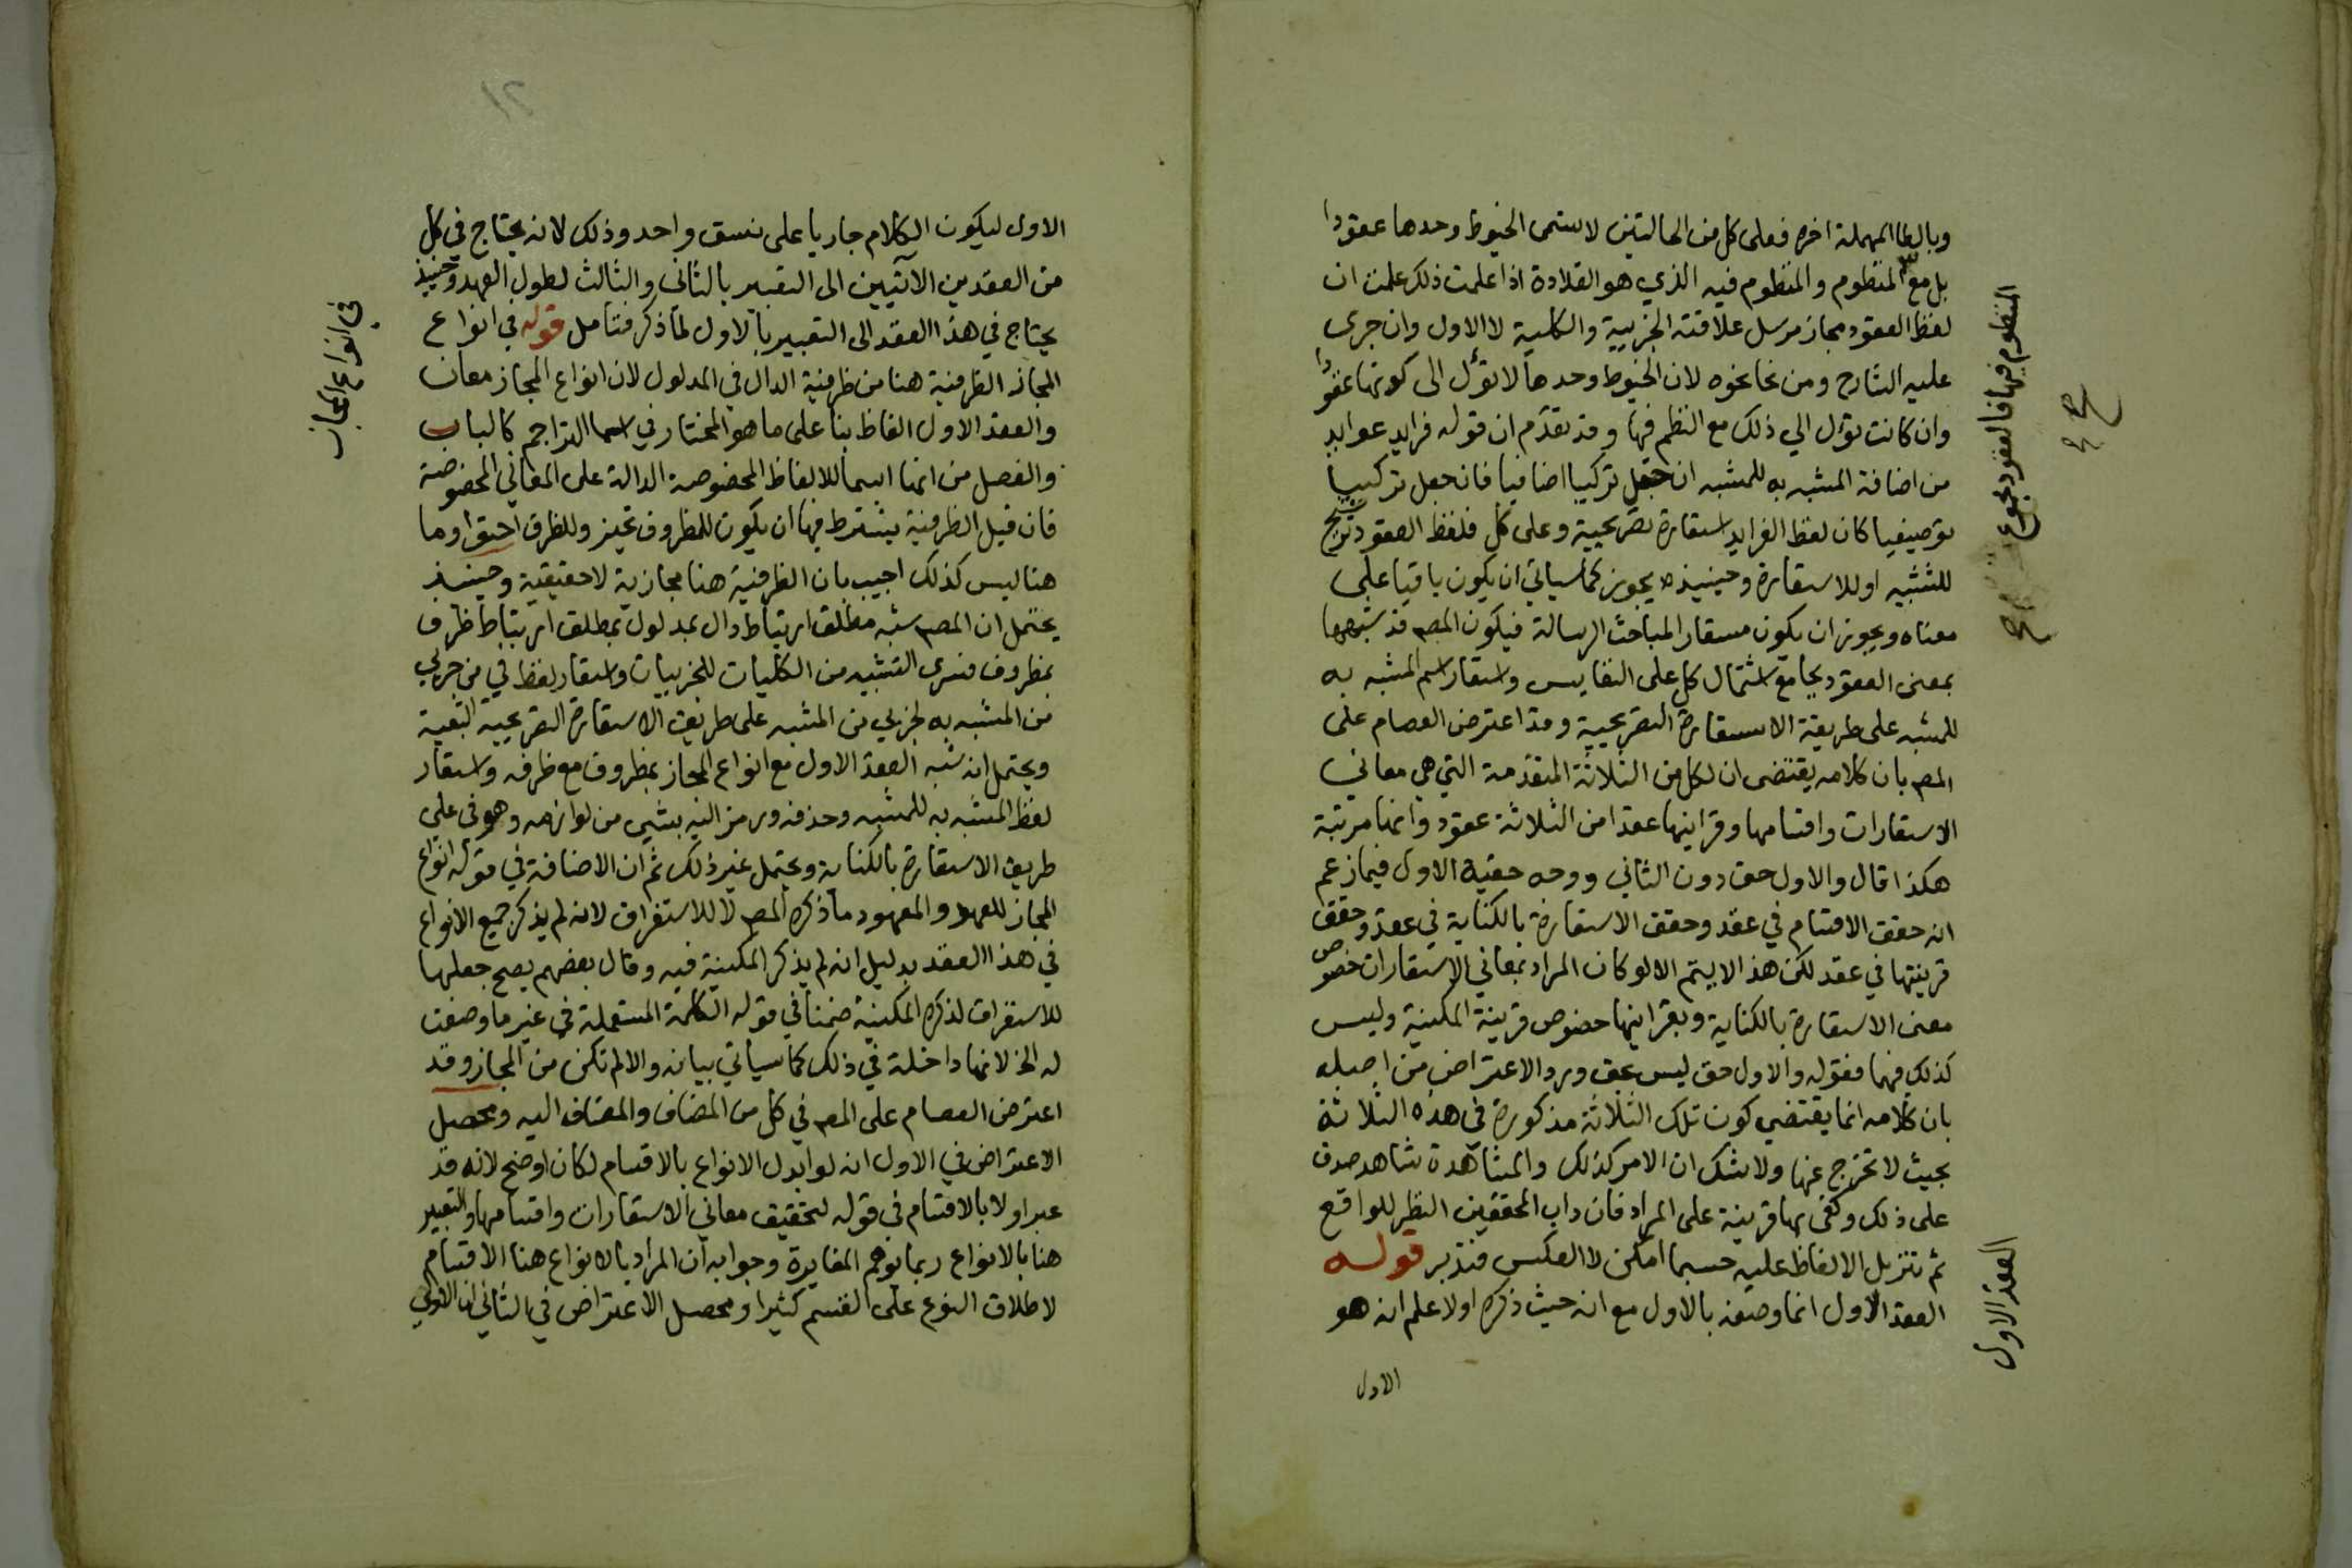 وبالطا المهملة اخره فعلى كل من الحالتين لا تسمى الخيوط وحدها عقودا
بل مع المنظوم والمنظوم فيه الذي هو القلادة اذا علمت ذلك علمت ان
لفظ العقود مجاز مرسل علاقته الجزيية والكلية لا الاول وان جرى
عليه الشارح ومن نحا نحوه لان الخيوط وحدها لا تؤل الى كونها عقودا
وان كانت تؤل الي ذلك مع النظم فيها وقد تقدم ان قوله فرايد عوايد
من اضافة المشبه به للمشبه ان جعل تركيبا اضافيا فان جعل تركيبا
توصيفيا كان لفظ الفرايد استعارة تصريحية وعلى كل فلفظ العقود ترشيح
للتشبيه او للاستعارة وحينيذ يجوز كما سياتي ان يكون باقيا على
معناه ويجوز ان يكون مستعارا لمباحث الرسالة فيكون المصـ قد شبهها
بمعنى العقود بجامع اشتمال كل على النفايس واستعار اسم المشبه به
للمشبه على طريقة الاستعارة التصريحية وقد اعترض العصام على
المصـ بان كلامه يقتضى ان لكل من الثلاثة المتقدمة التي هي معاني
الاستعارات واقسامها وقراينها عقدا من الثلاثة عقود وانها مرتبة
هكذا قال والاول حق دون الثاني ووجه حقية الاول فيما زعم
انه حقق الاقسام في عقد وحقق الاستعارة بالكناية في عقد وحقق
قرينتها في عقد لكن هذا لا يتم الا لو كان المراد بمعاني الاستعارات خصوص
معنى الاستعارة بالكناية وبقراينها خصوص قرينة المكنية وليس
كذلك فيهما فقوله والاول حق ليس بحق ورد الاعتراض من اصله
بان كلامه انما يقتضي كون تلك الثلاثة مذكورة في هذه الثلاثة
بحيث لا تخرج عنها ولا شك ان الامر كذلك والمشاهدة شاهد صدق
على ذلك وكفى بها قرينة على المراد فان داب المحققين النظر للواقع
ثم تنزيل الالفاظ عليه حسبما امكن لا العكس فتدبر قوله
العقد الاول انما وصفه بالاول مع انه حيث ذكره اولا علم انه هو
الاول
المنظوم فيها فالعقود مجموع
العقد الاول
الاول ليكون الكلام جاريا على نسق واحد وذلك لانه يحتاج في كل
من العقدين الآتيين الى التعبير بالثانى والثالث لطول العهد وحينيذ
يحتاج في هذا العقد الى التعبير بالاول لما ذكر فتامل قوله في انواع
المجاز الظرفية هنا من ظرفية الدال في المدلول لان انواع المجاز معان
والعقد الاول الفاظ بنا على ما هو المختار في اسما التراجم كالباب
والفصل من انها اسما للالفاظ المخصوصة الدالة على المعاني المخصوصة
فان قيل الظرفية يشترط فيها ان يكون للمظروف تحيز وللظرف احتوا وما
هنا ليس كذلك اجيب بان الظرفية هنا مجازية لا حقيقية وحينيذ
يحتمل ان المصـ شبه مطلق ارتباط دال بمدلول بمطلق ارتباط ظرف
بمظروف فسرى التشبيه من الكليات للجزييات واستعار لفظ في من جزيي
من المشبه به لجزيي من المشبه على طريق الاستعارة التصريحية التبعية
ويحتمل انه شبه العقد الاول مع انواع المجاز بمظروف مع ظرفه واستعار
لفظ المشبه به للمشبه وحذفه ورمز اليه بشيي من لوازمه وهو في على
طريق الاستعارة بالكناية ويحتمل غير ذلك ثم ان الاضافة في قوله انواع
المجاز للعهد والمعهود ما ذكره المصـ لا للاستغراق لانه لم يذكر جميع الانواع
في هذا العقد بدليل انه لم يذكر المكنية فيه وقال بعضهم يصح جعلها
للاستغراق لذكره المكنية ضمنا في قوله الكلمة المستعملة في غير ما وضعت
له الخ لانها داخلة في ذلك كما سياتي بيانه والا لم تكن من المجاز وقد
اعترض العصام على المصـ في كل من المضاف والمضاف اليه ومحصل
الاعتراض في الاول انه لو ابدل الانواع بالاقسام لكان اوضح لانه قد
عبر اولا بالاقسام في قوله لتحقيق معاني الاستعارات واقسامها والتعبير
هنا بالانواع ربما توهم المغايرة وجوابه ان المراد بالانواع هنا الاقسام
لاطلاق النوع على القسم كثيرا ومحصل الاعتراض في الثاني ان الاولي
في انواع المجاز